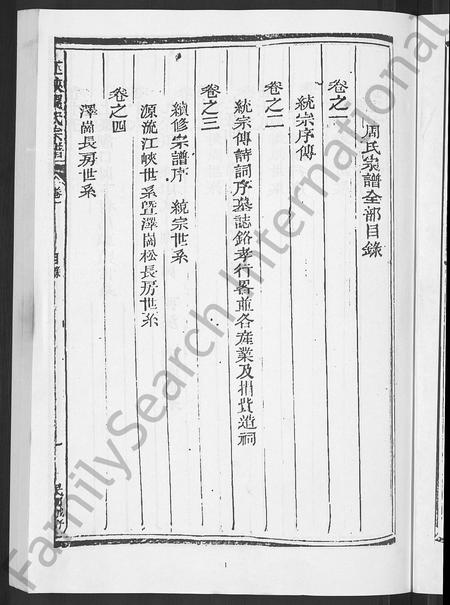 周氏宗譜全部目錄
卷之一
統宗序傳
卷之二
統宗傳詩詞序墓誌銘孝行畧前各產業及捐費造祠
卷之三
續修宗譜序 統宗世系
源流江峽世系暨澤崗松長房世系
卷之四
澤崗長房世系
氏宗譜
目錄
1
FamilySearch International